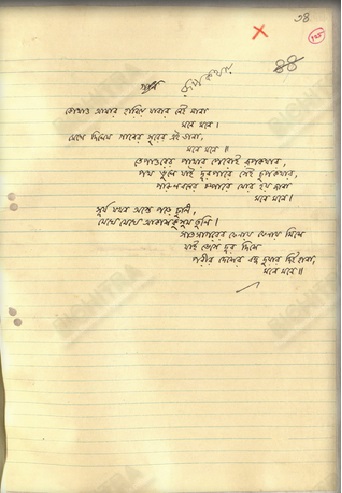 ৩৪
১২৫
৪৪
রূপকথায়
কোথাও আমার হারিয়ে যাবার নেই মানা
মনে মনে।
মেলে দিলেম গানের সুরের এই ডানা,
মনে মনে॥
তেপান্তরের পাথার পেরোই রূপকথার,
পথ ভুলে যাই দূর পারে সেই চুপকথার,
পারুলবনের চম্পারে মোর হয় জানা
মনে মনে॥
সূর্য যখন অস্তে পড়ে ঢুলি,
মেঘে মেঘে আকাশকুসুম তুলি।
সাতসাগরের ফেনায় ফেনায় মিশে
যাই ভেসে দূর দিশে
পরীর দেশের বদ্ধ দুয়ার দিই হানা,
মনে মনে॥
BICHITRA